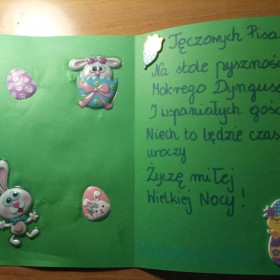 Tęczowych Pisa
Na stole pysznośc
Mokrego Dyngus
I wspaniałych gośc
Niech to będzie czas
uroczy
Życzę miłej
Wielkiej Nocy!